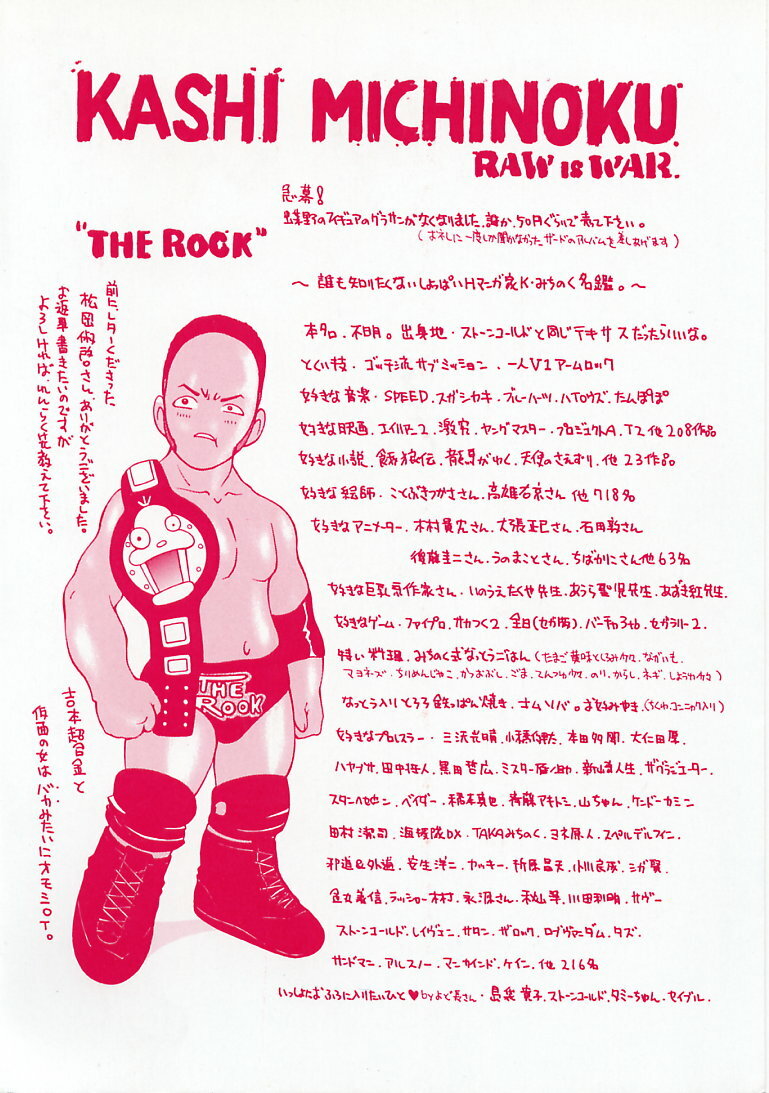 KASHI MICHINOKU
RAW IS WAR.
急募!
のフィギュアのグラサンがなくなりました。誰か、50円ぐらいで売て下さい。
(お礼に一度しか聞かなかったザードのアルバムを差しあげます)
"THE ROCK"
〜誰も知りたくないしょっぱいHマンガ家K・みちのく名鑑。〜
前にレターくださった
松岡さん、ありがとうございました。
お返事書きたいのですが
よろしければ、れんらく先教えて下さい。
本名、不明。出身地・ストーンコールドと同じテキサスだったらいいな。
とくい技・ゴッチ流サブミッション、一人V1アームロック
好きな音楽・SPEED.スガシカキ.ブルーハーツ.ハイロウズ.たんぽぽ
好きな映画.エイリアン2.激突.ヤングマスター.プロジェクトA.T2他208作品
好きな小説.餓狼伝.龍馬がゆく.天使のさえずり.他23作品
好きな絵師・ことぶきつかささん.高雄右京さん他718名
好きなアニメーター.木村貴宏さん.大張正巳さん.石田敦さん
後藤圭二さん.うのまことさん.ちばかにこさん他63名
好きな巨乳系作家さん.いのうえたくや先生.あうら聖児先生.あずき紅先生.
好きなゲーム・ファイプロ.サカつく2.全日(セガ版).バーチャ3.セガラリー2.
特い料理.みちのく式なっとうごはん(たまご
マヨネーズ.ちりめんじゃこ.かつおぶし.ごま.てんつゆ.のり.からし.ネギ.しょうゆ)
なっとう入りとろろ鉄っぱん焼き.オムソバ。お好みやき(ちくわ.コンニャク入り)
好きなプロレスラー・三沢光晴.小橋健太.本田多聞.大仁田厚
ハヤブサ.田中将人.黒田哲広.ミスター雁之助.新山勝利.ザグラジエーター.
スタンハンセン.ベイダー.橋本真也.斉藤アキトシ.山ちゃん.ケンドーカシン
田村潔司.海援隊DX.TAKAみちのく.ヨネ原人.スペルデルフィン.
邪道&外道.安生洋二.ヤッキー.折原昌夫.小川良成.シガ賢.
金丸義信.ラッシャー木村.永源さん.秋山準.川田利明.サヴー
ストーンコールド.レイヴェン.サタン.ザロック.ロブヴァンダム.タズ.
サンドマン.アルスノー.マンカインド.ケイン.他216名
いっしょにおふろに入りたいひと♥byよど長さん・島袋寛子.ストーンコールド.タミーちゃん.セイブル.
吉本超合金と
仮面の女はバカみたいにオモシロイ。
THE
ROCK
THE ROCK